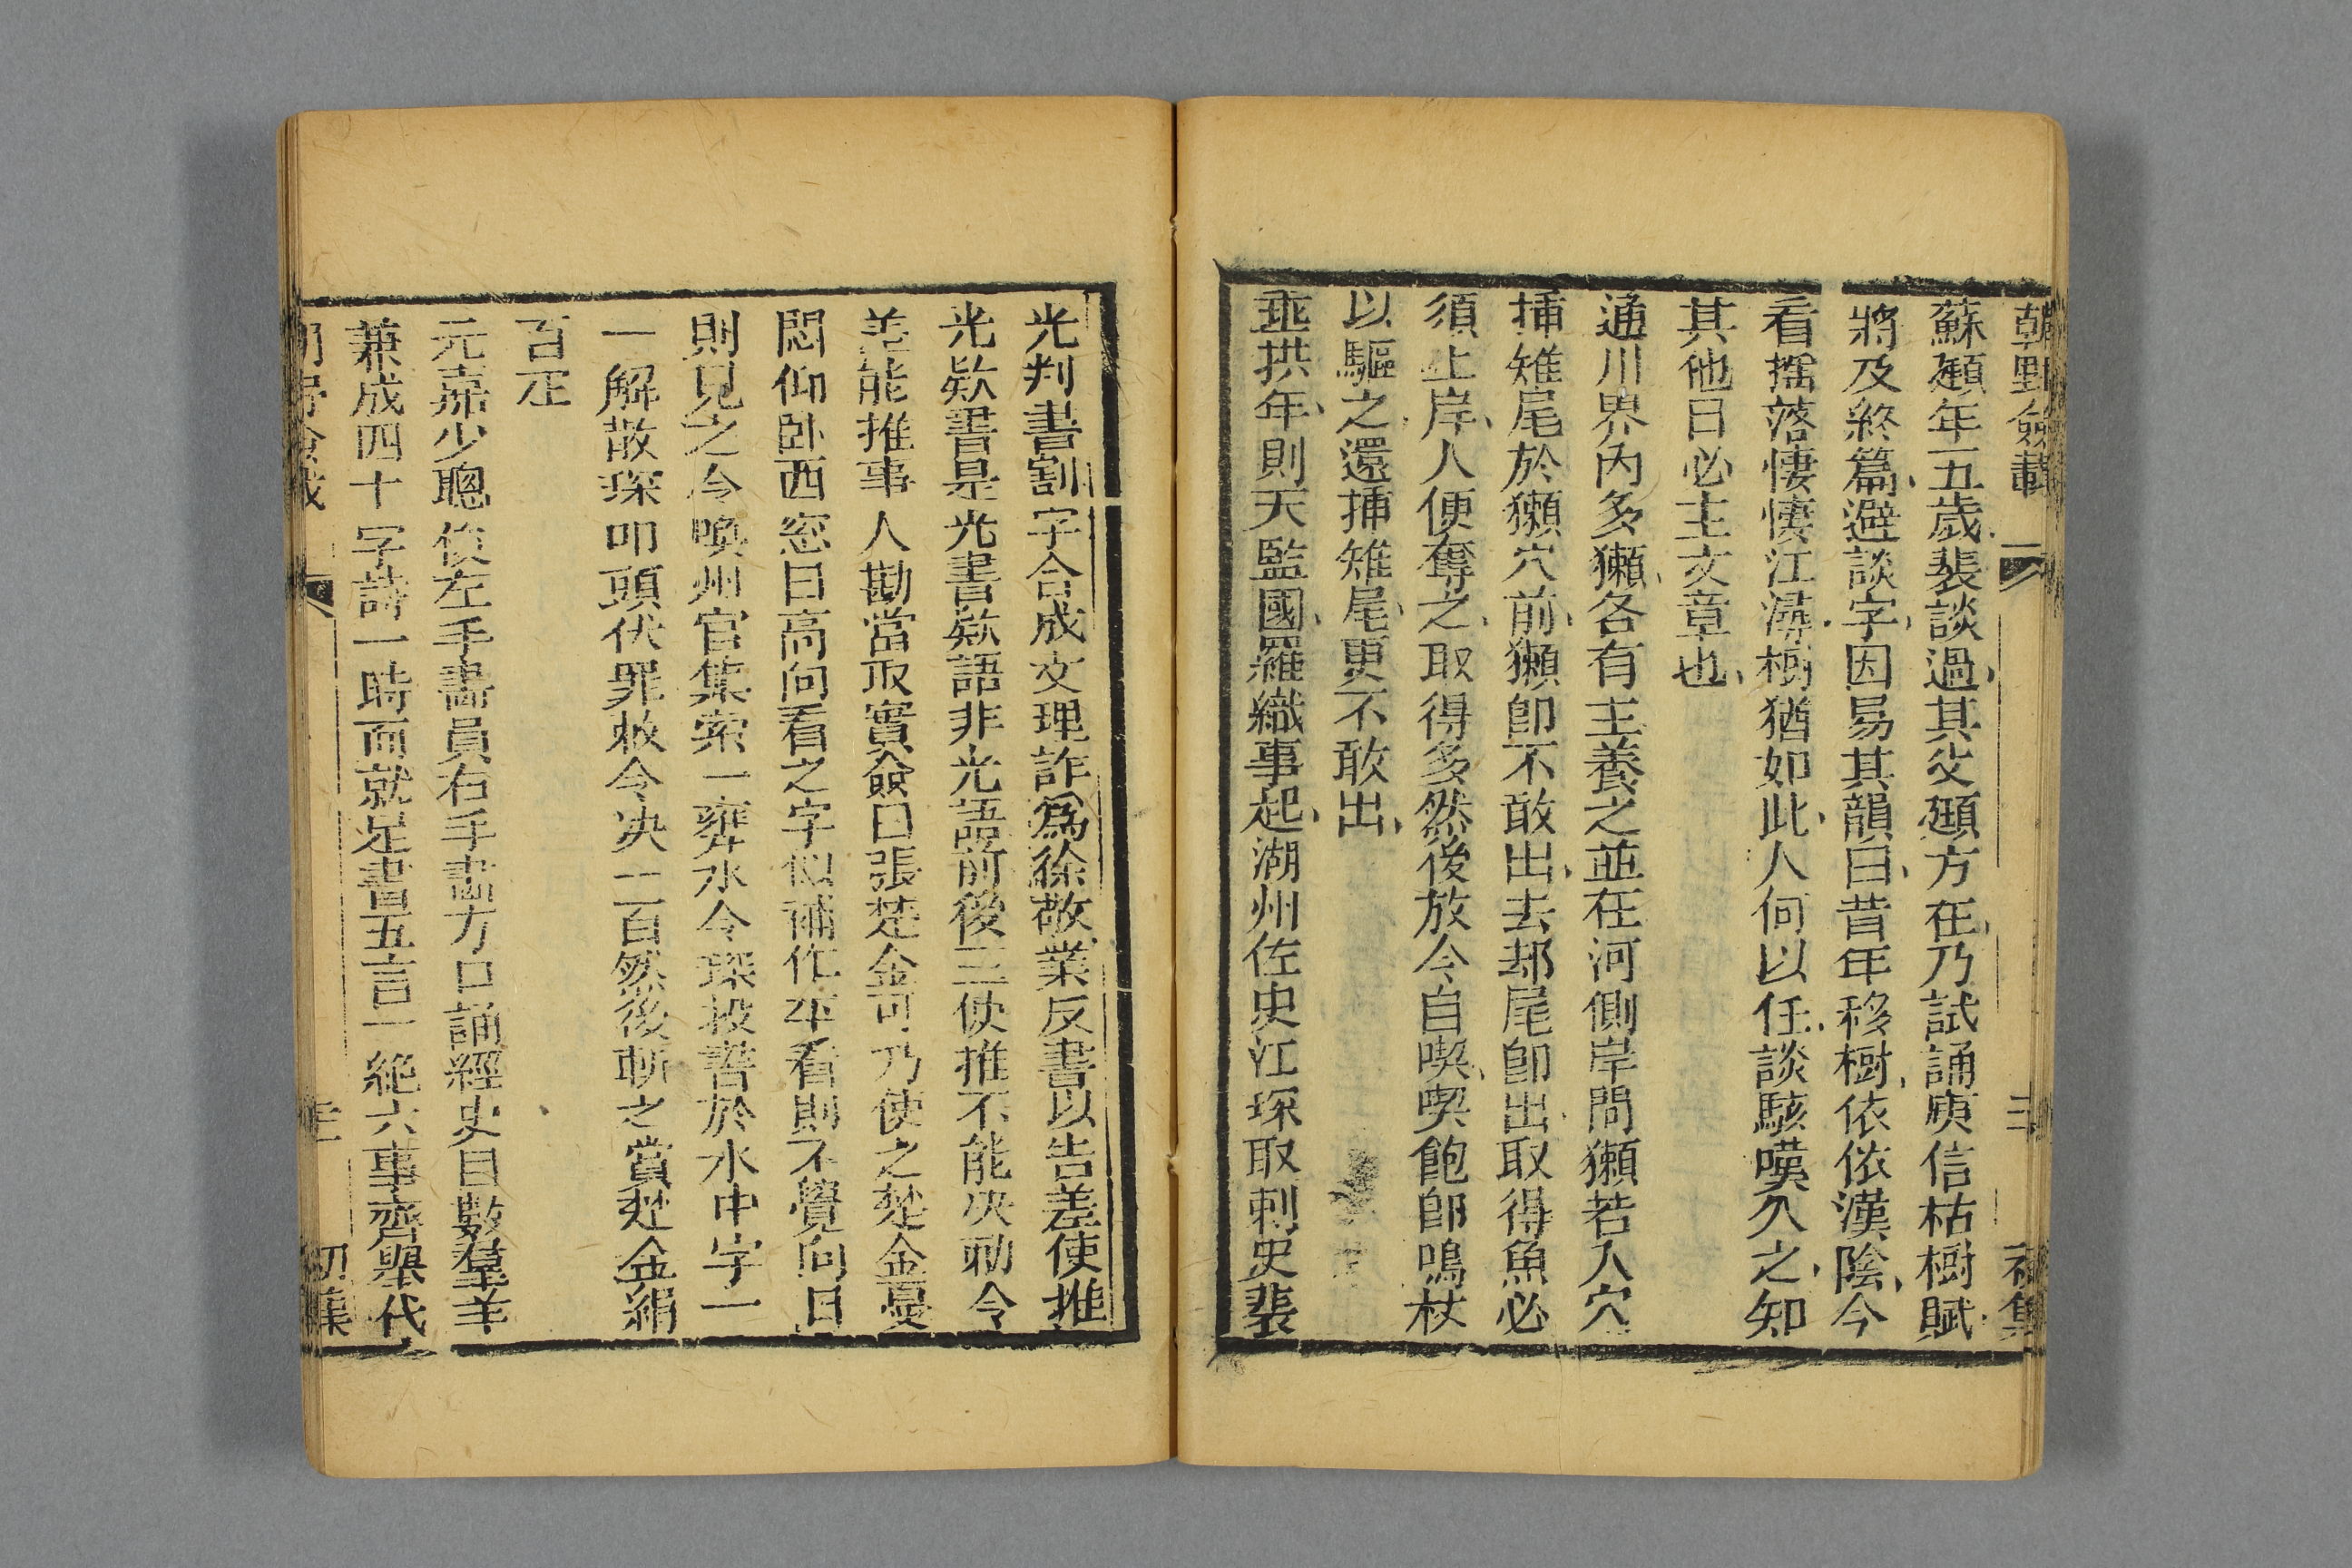 朝野僉載 一 三 初集
蘇頲年五歲裴談過其父頲方在乃試誦庾信枯樹賦
將及終篇避談字因易其韻曰昔年移樹依依漢陰今
看搖落悽悽江潯樹猶如此人何以任談駭嘆久之知
其他日必主文章也
通川界內多獺各有主養之並在河側岸間獺若入穴
插雉尾於獺穴前獺卽不敢出去却尾卽出取得魚必
須上岸人便奪之取得多然後放令自喫喫飽卽鳴杖
以驅之還插雉尾更不敢出
垂拱年則天監國羅織事起湖州佐史江琛取刺史裴
光判書割字合成文理詐爲徐敬業反書以告差使推
光欵書是光書欵語非光語前後三使推不能決勅令
差能推事人勘當取實僉曰張楚金可乃使之楚金憂
悶仰臥西窓日高向看之字似補作平看則不覺向日
則見之令喚州官集索一甕水令琛投書於水中字一
一解散琛叩頭伏罪敕令決一百然後斬之賞楚金絹
百疋
元嘉少聰俊左手畫員右手畫方口誦經史目數羣羊
兼成四十字詩一時而就足書五言一絕六事齊舉代
朝野僉載 初集